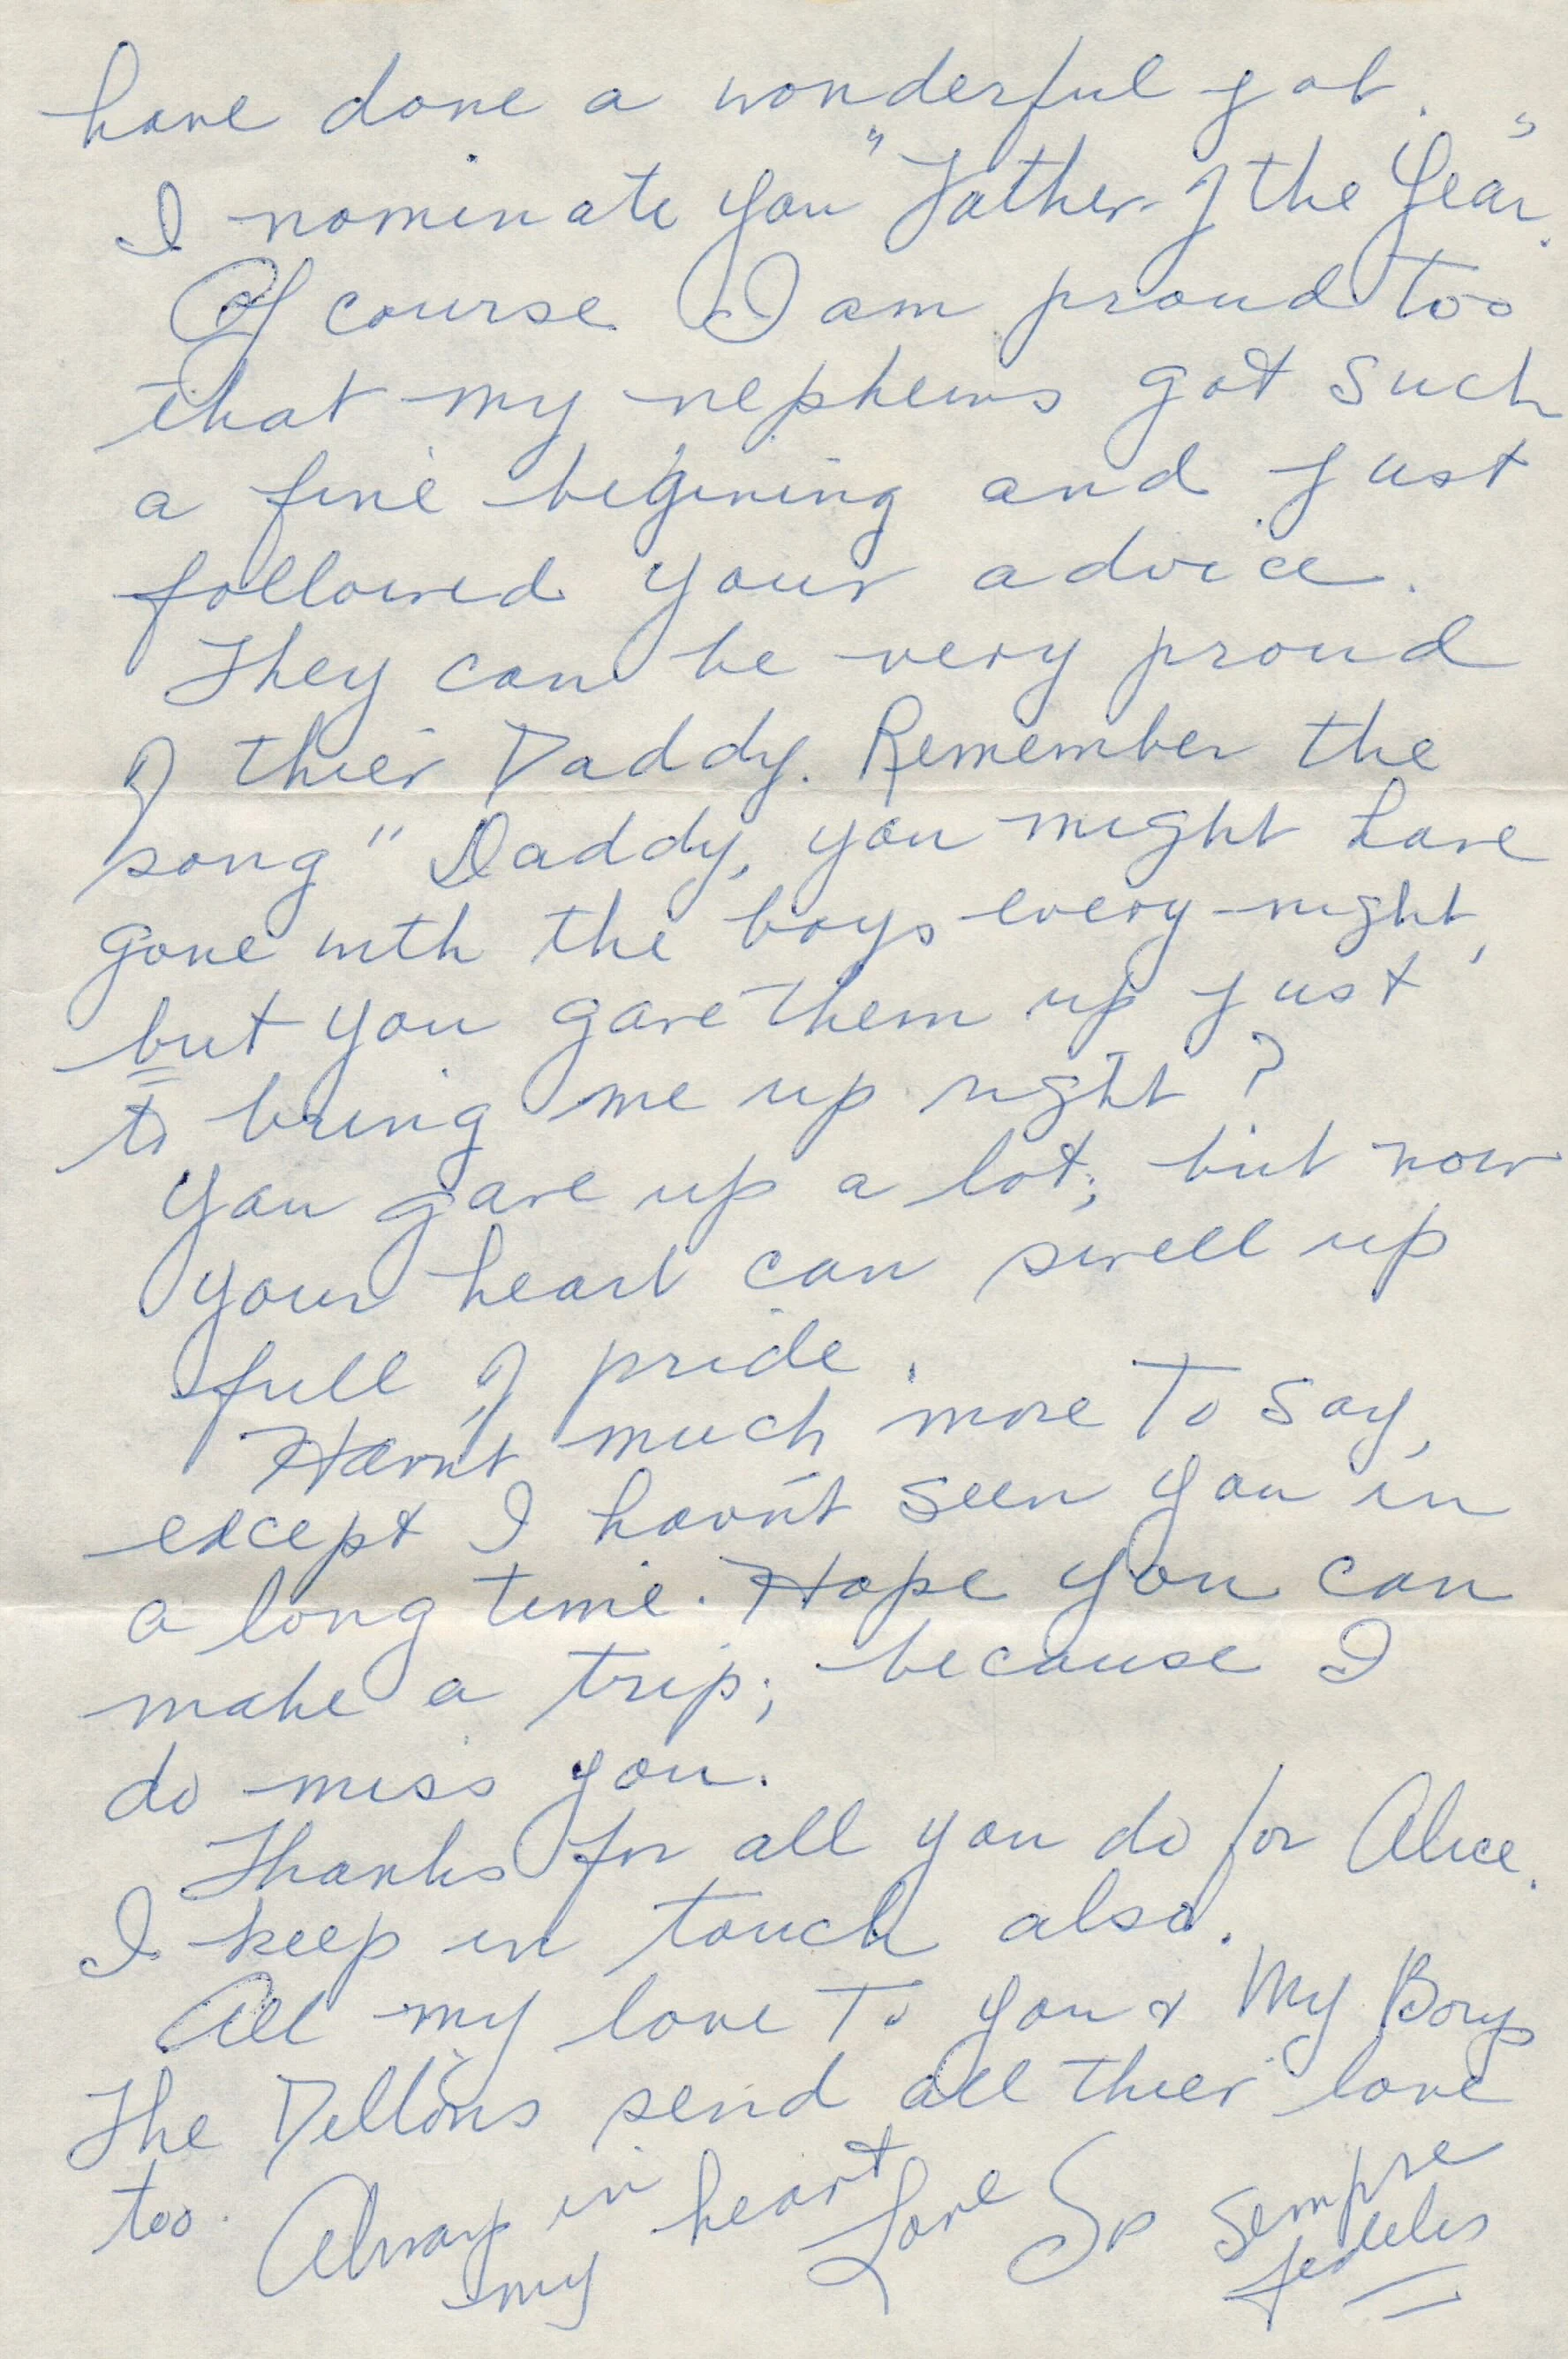 have done a wonderful job.
I nominate you "Father of the Year."
Of course I am proud too
that my nephews got such
a fine begining and just
followed your advice.
They can be very proud
of thier Daddy. Remember the
song "Daddy, you might have
gone with the boys every night,
but you gave them up just
to bring me up right?
You gave up a lot; but now
your heart can swell up
full of pride.
Havn't much more to say,
except I havn't seen you in
a long time. Hope you can
make a trip; because I
do miss you.
Thanks for all you do for Alice.
I keep in touch also.
All my love to you & My Boys
The Dillons send all thier love
too. Always in my heart Love Sempre
fedelis